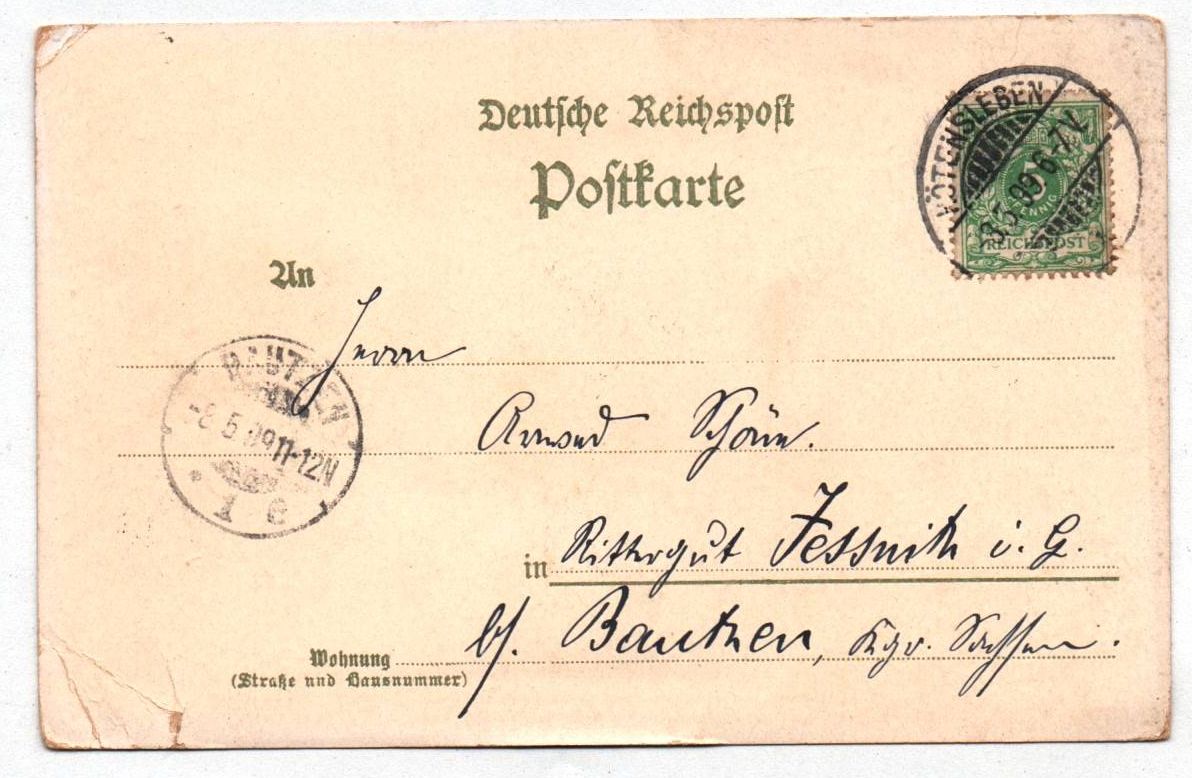 Deutsche Reichspost
Postkarte
HÖTENSLEBEN
8.5.99 6-7V.
5
PFENNIG
REICHSPOST
An
Herrn
BAUTZEN
-8 5 99 11-12N
1 c
Schöne.
in Rittergut Jessnitz i. G.
b/. Bautzen, Kgr. Sachsen.
Wohnung
(Straße und Hausnummer)